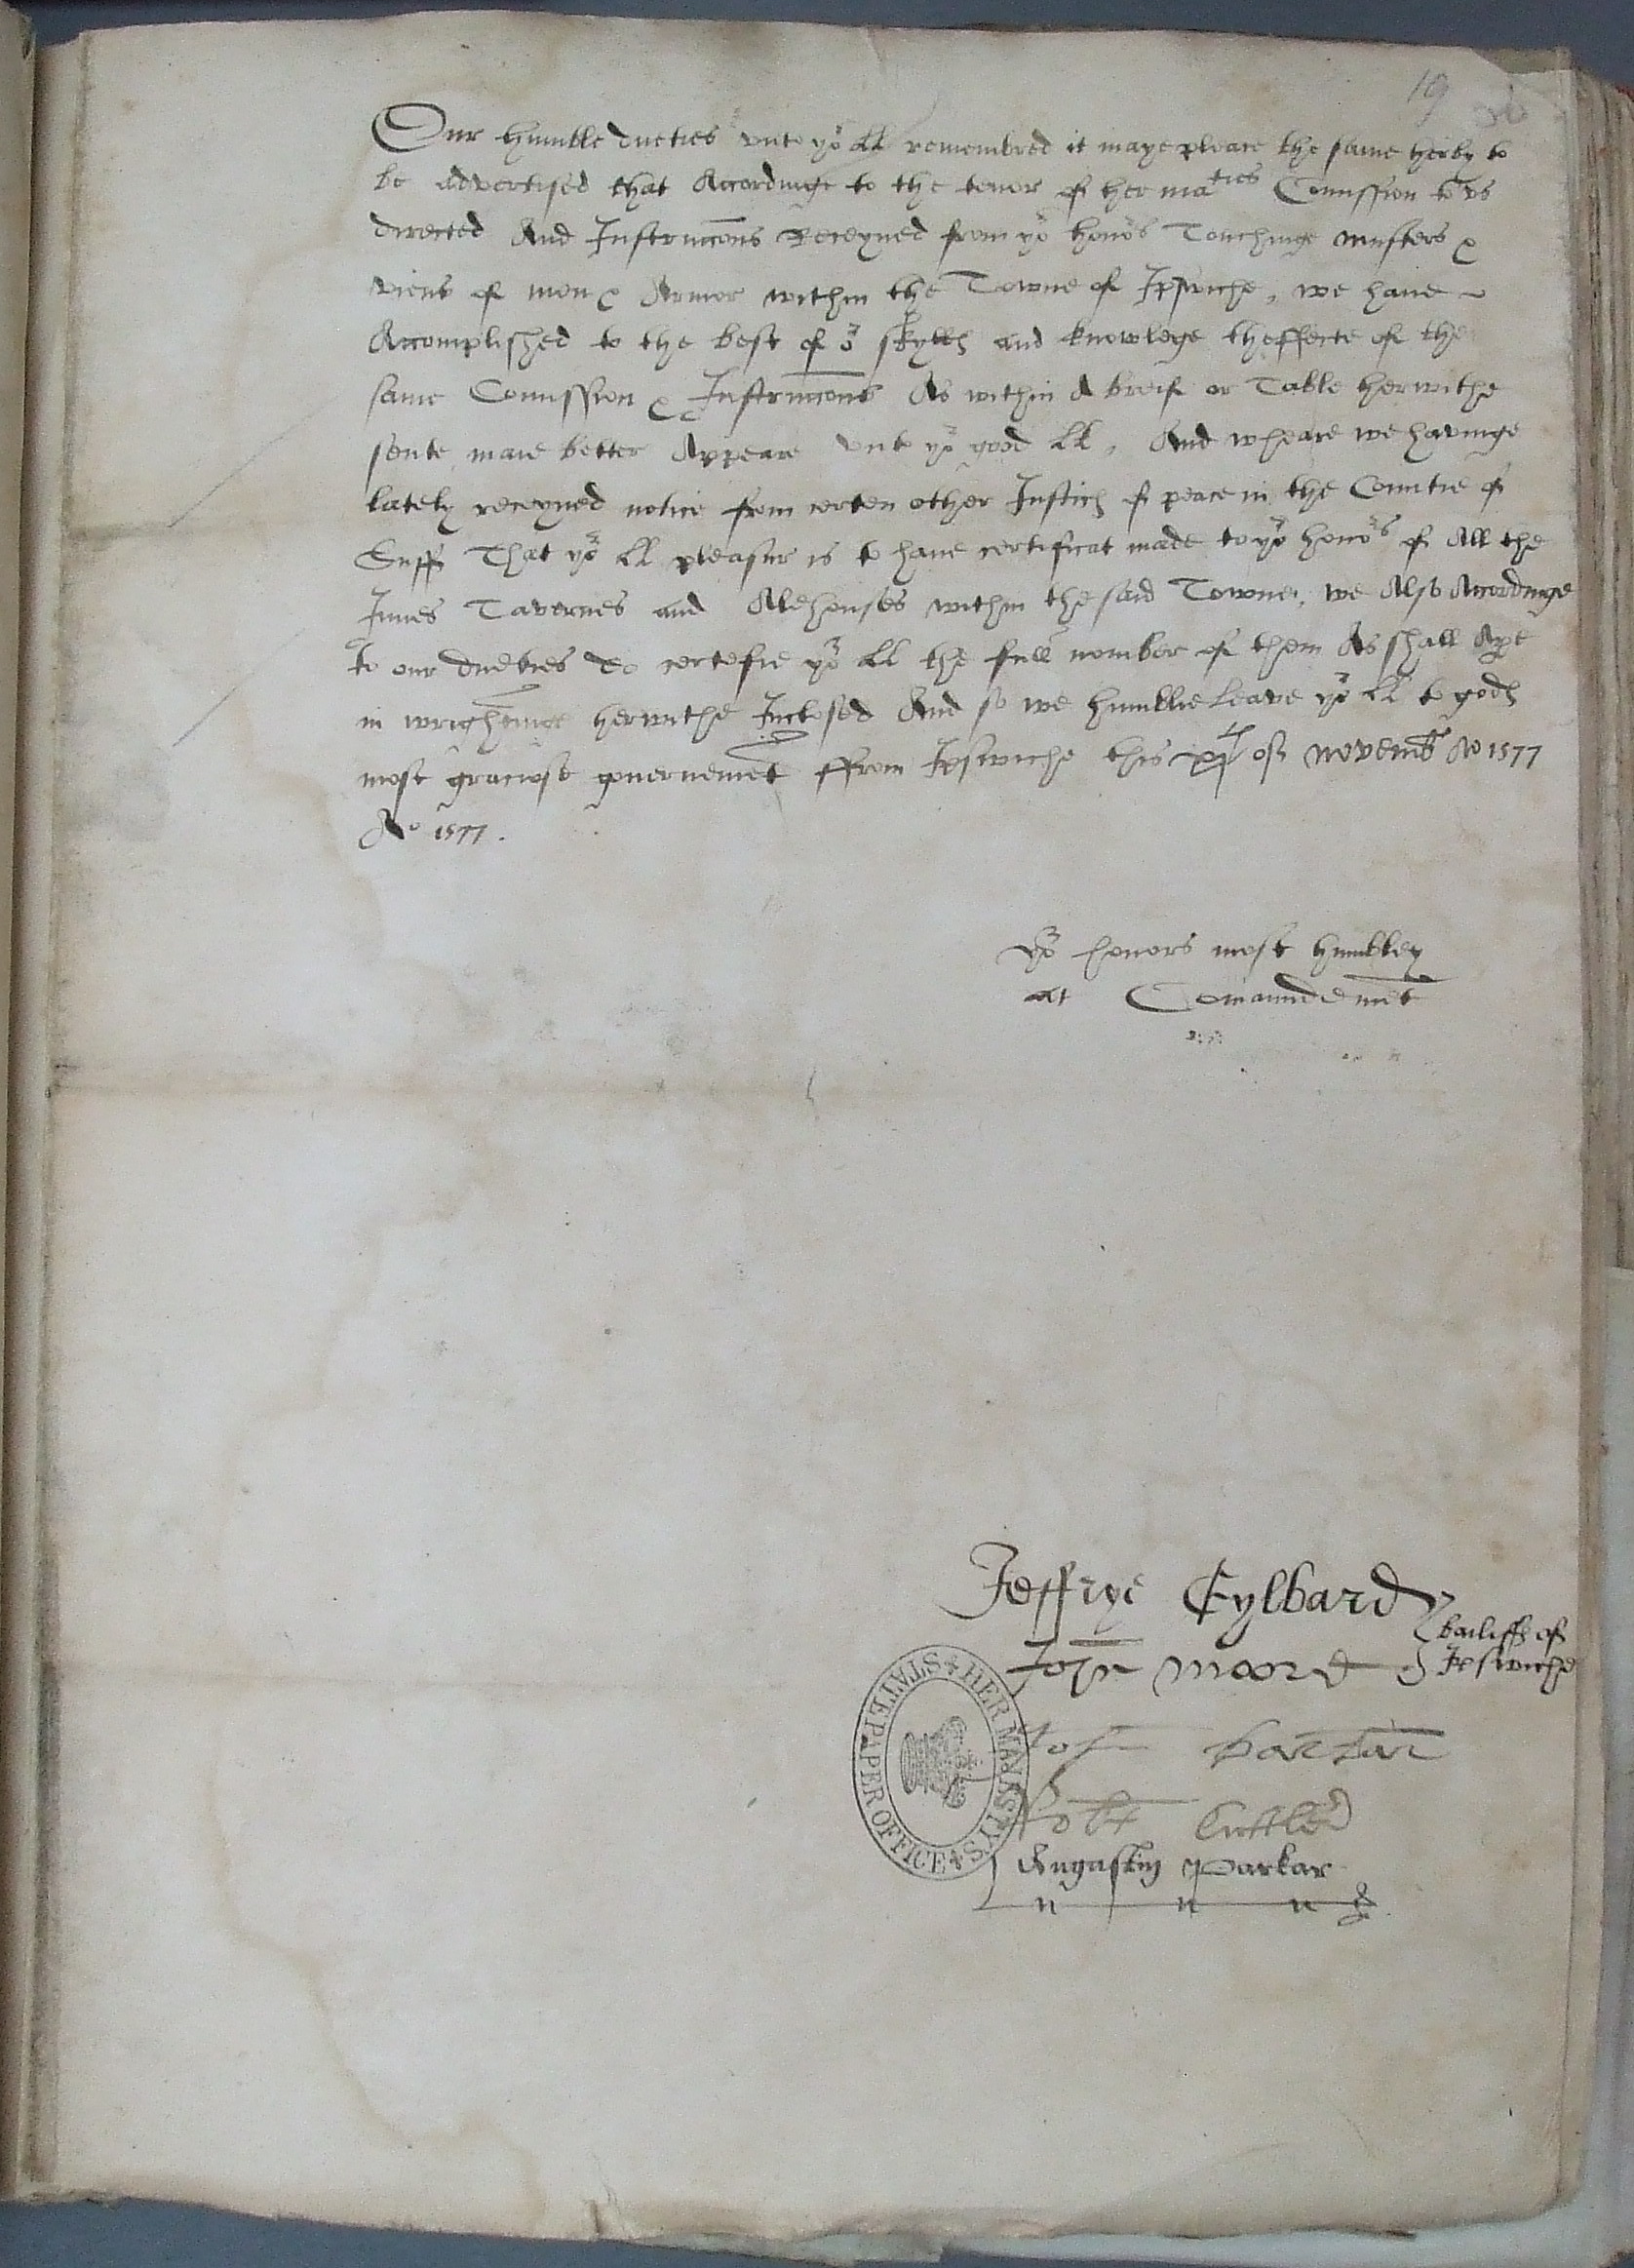 19
Our humble dueties vnto yor LL remembred it maye please the same herby to
be advertised that Accordinge to the tenor of her maties Comission to vs
directed And Instruccons Receyued from yor honors Touchinge musters &
viewe of men & Armor within the Towne of Ipswiche, we haue
Accomplished to the best of or skylls and knowlege theffecte of the
same Comission & Instruccons As within A breif or Table herwithe
sente maie better Appeare vnto yor good LL, And wheare we havinge
lately receyued notice from certen other Justics of peace in the Countie of
Suff That yor LL pleasur is to haue certificat made to yor honors of All the
Innes Tavernes and Alehouses within the said Towne, we Also Accordinge
to our dueties do certefie yor LL the full nomber of them As shall Apere
in wrightinge herwithe Inclosed And so we humblie Leave yor LL to gods
most graciose gouernemet ffrom Ipswiche this of novemb Ao 1577
Ao 1577.
Yor honors most humbley
at Comaundemet
Jeffrye Cylbard
bailiffs of
John moore Ipswiche
Joh barkar
Robt Cuttler
Augustin Parkar
HER MAJESTY'S STATE PAPER OFFICE